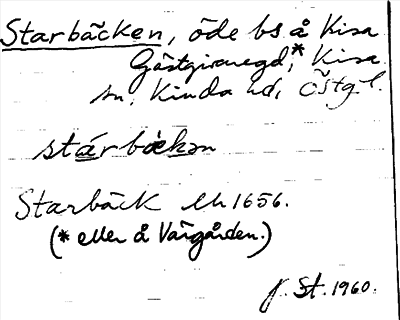 Starbäcken, öde bs å Kisa
Gästgivaregd,* Kisa
sn, Kinda hd, Östg. l.
stárbækən
Starbäck lh 1656.
(* eller å Värgården.)
J. St. 1960.